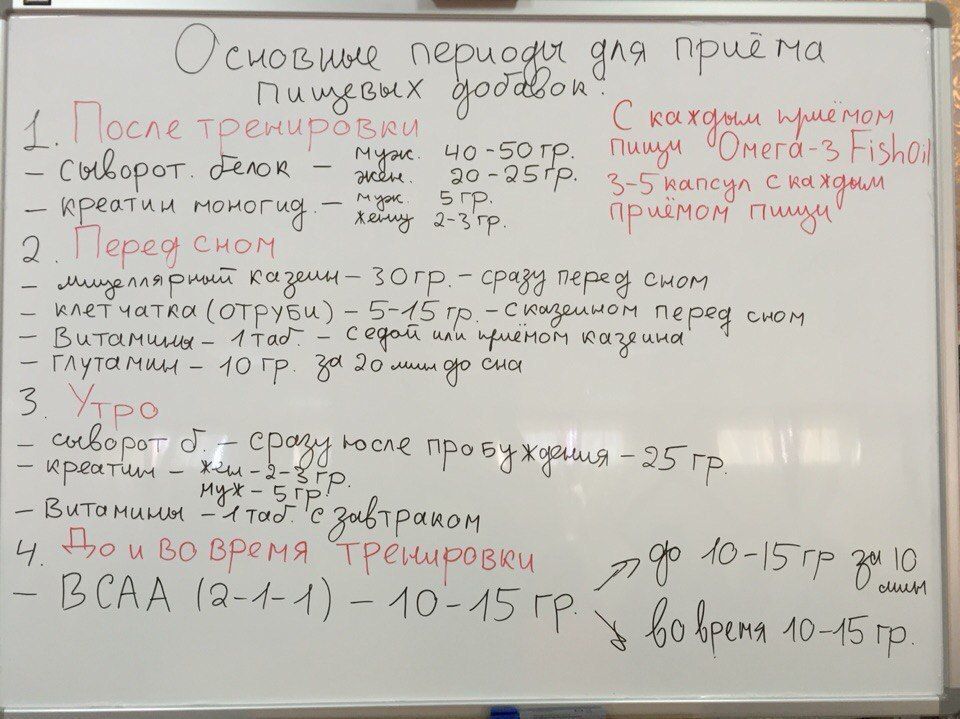 Основные периоды для приёма
пищевых добавок.
1. После тренировки
– сыворот. белок – муж. 40-50 гр.
жен. 20-25 гр.
– креатин моногид. – муж. 5 гр.
женщ 2-3 гр.
С каждым приёмом
пищи Омега-3 FishOil
3-5 капсул с каждым
приёмом пищи
2. Перед сном
– мицеллярный казеин – 30 гр. – сразу перед сном
– клетчатка (отруби) – 5-15 гр. – с казеином перед сном
– Витамины – 1 таб. – с едой или приёмом казеина
– глутамин – 10 гр. за 20 мин до сна
3. Утро
– сыворот б. – сразу после пробуждения – 25 гр.
– креатин – жен – 2-3 гр.
муж – 5 гр.
– Витамины – 1 таб. с завтраком
4. До и во время тренировки
– BCAA (2-1-1) – 10-15 гр.
до 10-15 гр за 10
мин
во время 10-15 гр.